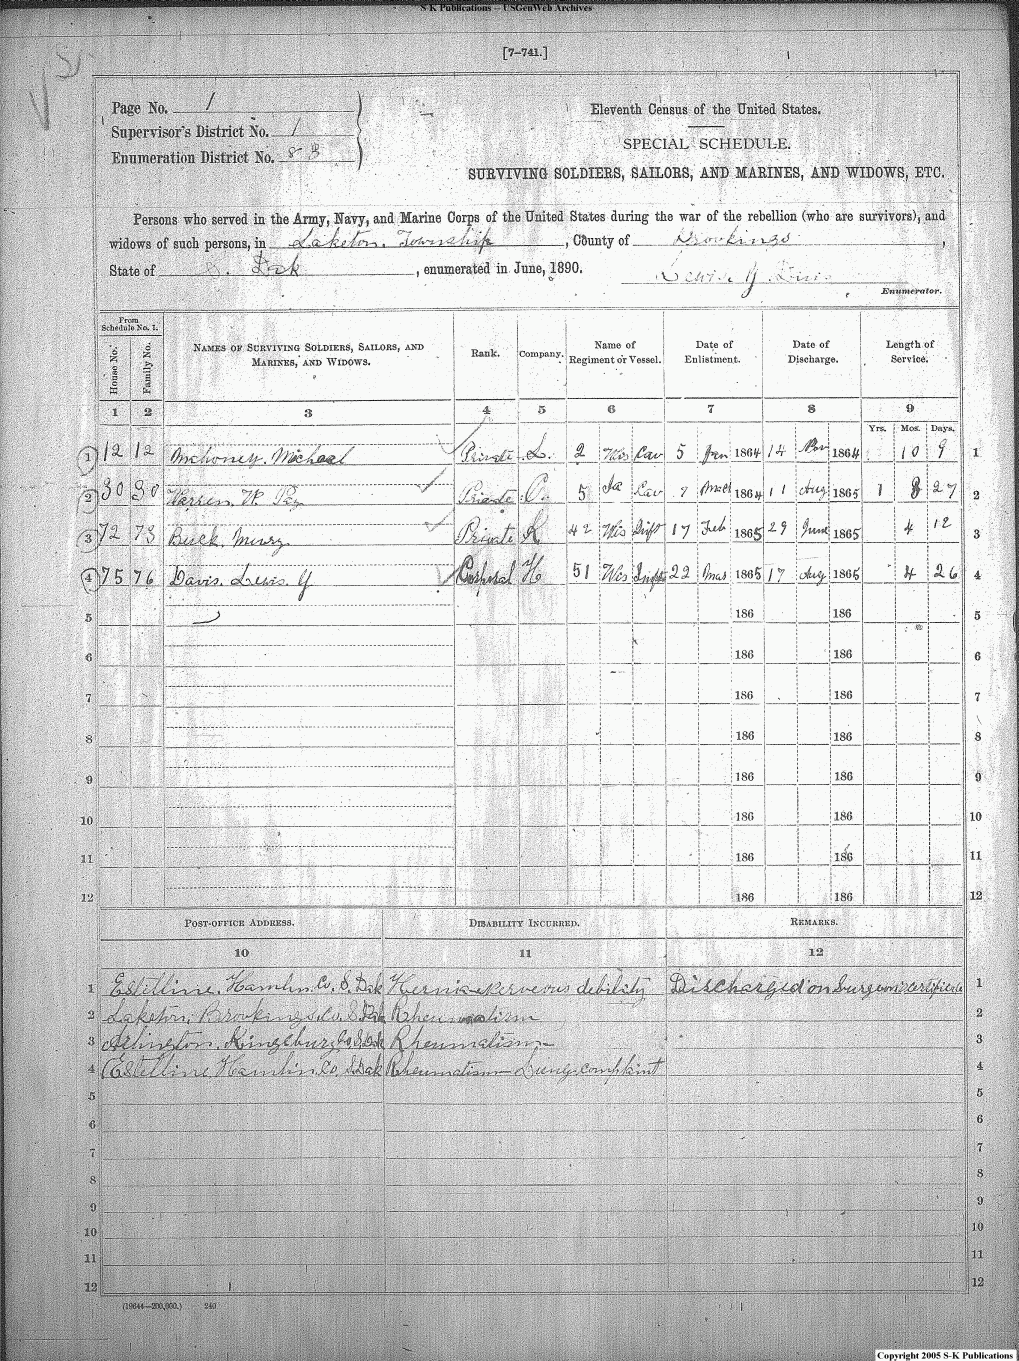 S-K Publications -- USGenWeb Archives
[7-741.]
Page No. 1
Supervisor's District No. 1
Enumeration District No. 83
Eleventh Census of the United States.
SPECIAL SCHEDULE.
SURVIVING SOLDIERS, SAILORS, AND MARINES, AND WIDOWS, ETC.
Persons who served in the Army, Navy, and Marine Corps of the United States during the war of the rebellion (who are survivors), and
widows of such persons, in Laketon Township, County of Brookings,
State of S. Dak, enumerated in June, 1890.
Lewis Y Davis
Enumerator.
From Schedule No. 1.
House No. Family No. NAMES OF SURVIVING SOLDIERS, SAILORS, AND MARINES, AND WIDOWS. Rank. Company. Name of Regiment or Vessel. Date of Enlistment. Date of Discharge. Length of Service.
1 2 3 4 5 6 7 8 9
Yrs. Mos. Days.
1 12 12 Mahoney. Micheal Private L. 2 Wis Cav 5 Jan 1864 14 Nov 1864 10 9 1
2 30 30 Warren. W. Private 5 Ia Cav 1864 11 Aug 1865 1 27 2
3 72 73 Buck. Private K 42 Wis 17 Feb 1865 29 June 1865 4 12 3
4 75 76 Davis. Lewis. Y Corporal H 51 Wis 22 Mar 1865 17 Aug 1865 4 26 4
5 186 186 5
6 186 186 6
7 186 186 7
8 186 186 8
9 186 186 9
10 186 186 10
11 186 186 11
12 186 186 12
POST-OFFICE ADDRESS. DISABILITY INCURRED. REMARKS.
10 11 12
1 Estelline. Hamlin. Co. S. Dak Hernia nerveous debility Discharged on Surgeons certificate 1
2 Laketon. Brookings Co. S. Dak Rheumatism 2
3 Arlington. Kingsbury Co S. Dak Rheumatism 3
4 Estelline. Hamlin. Co. S. Dak Rheumatism complaint 4
5 5
6 6
7 7
8 8
9 9
10 10
11 11
12 12
(19644—200,000.) 240
Copyright 2005 S-K Publications